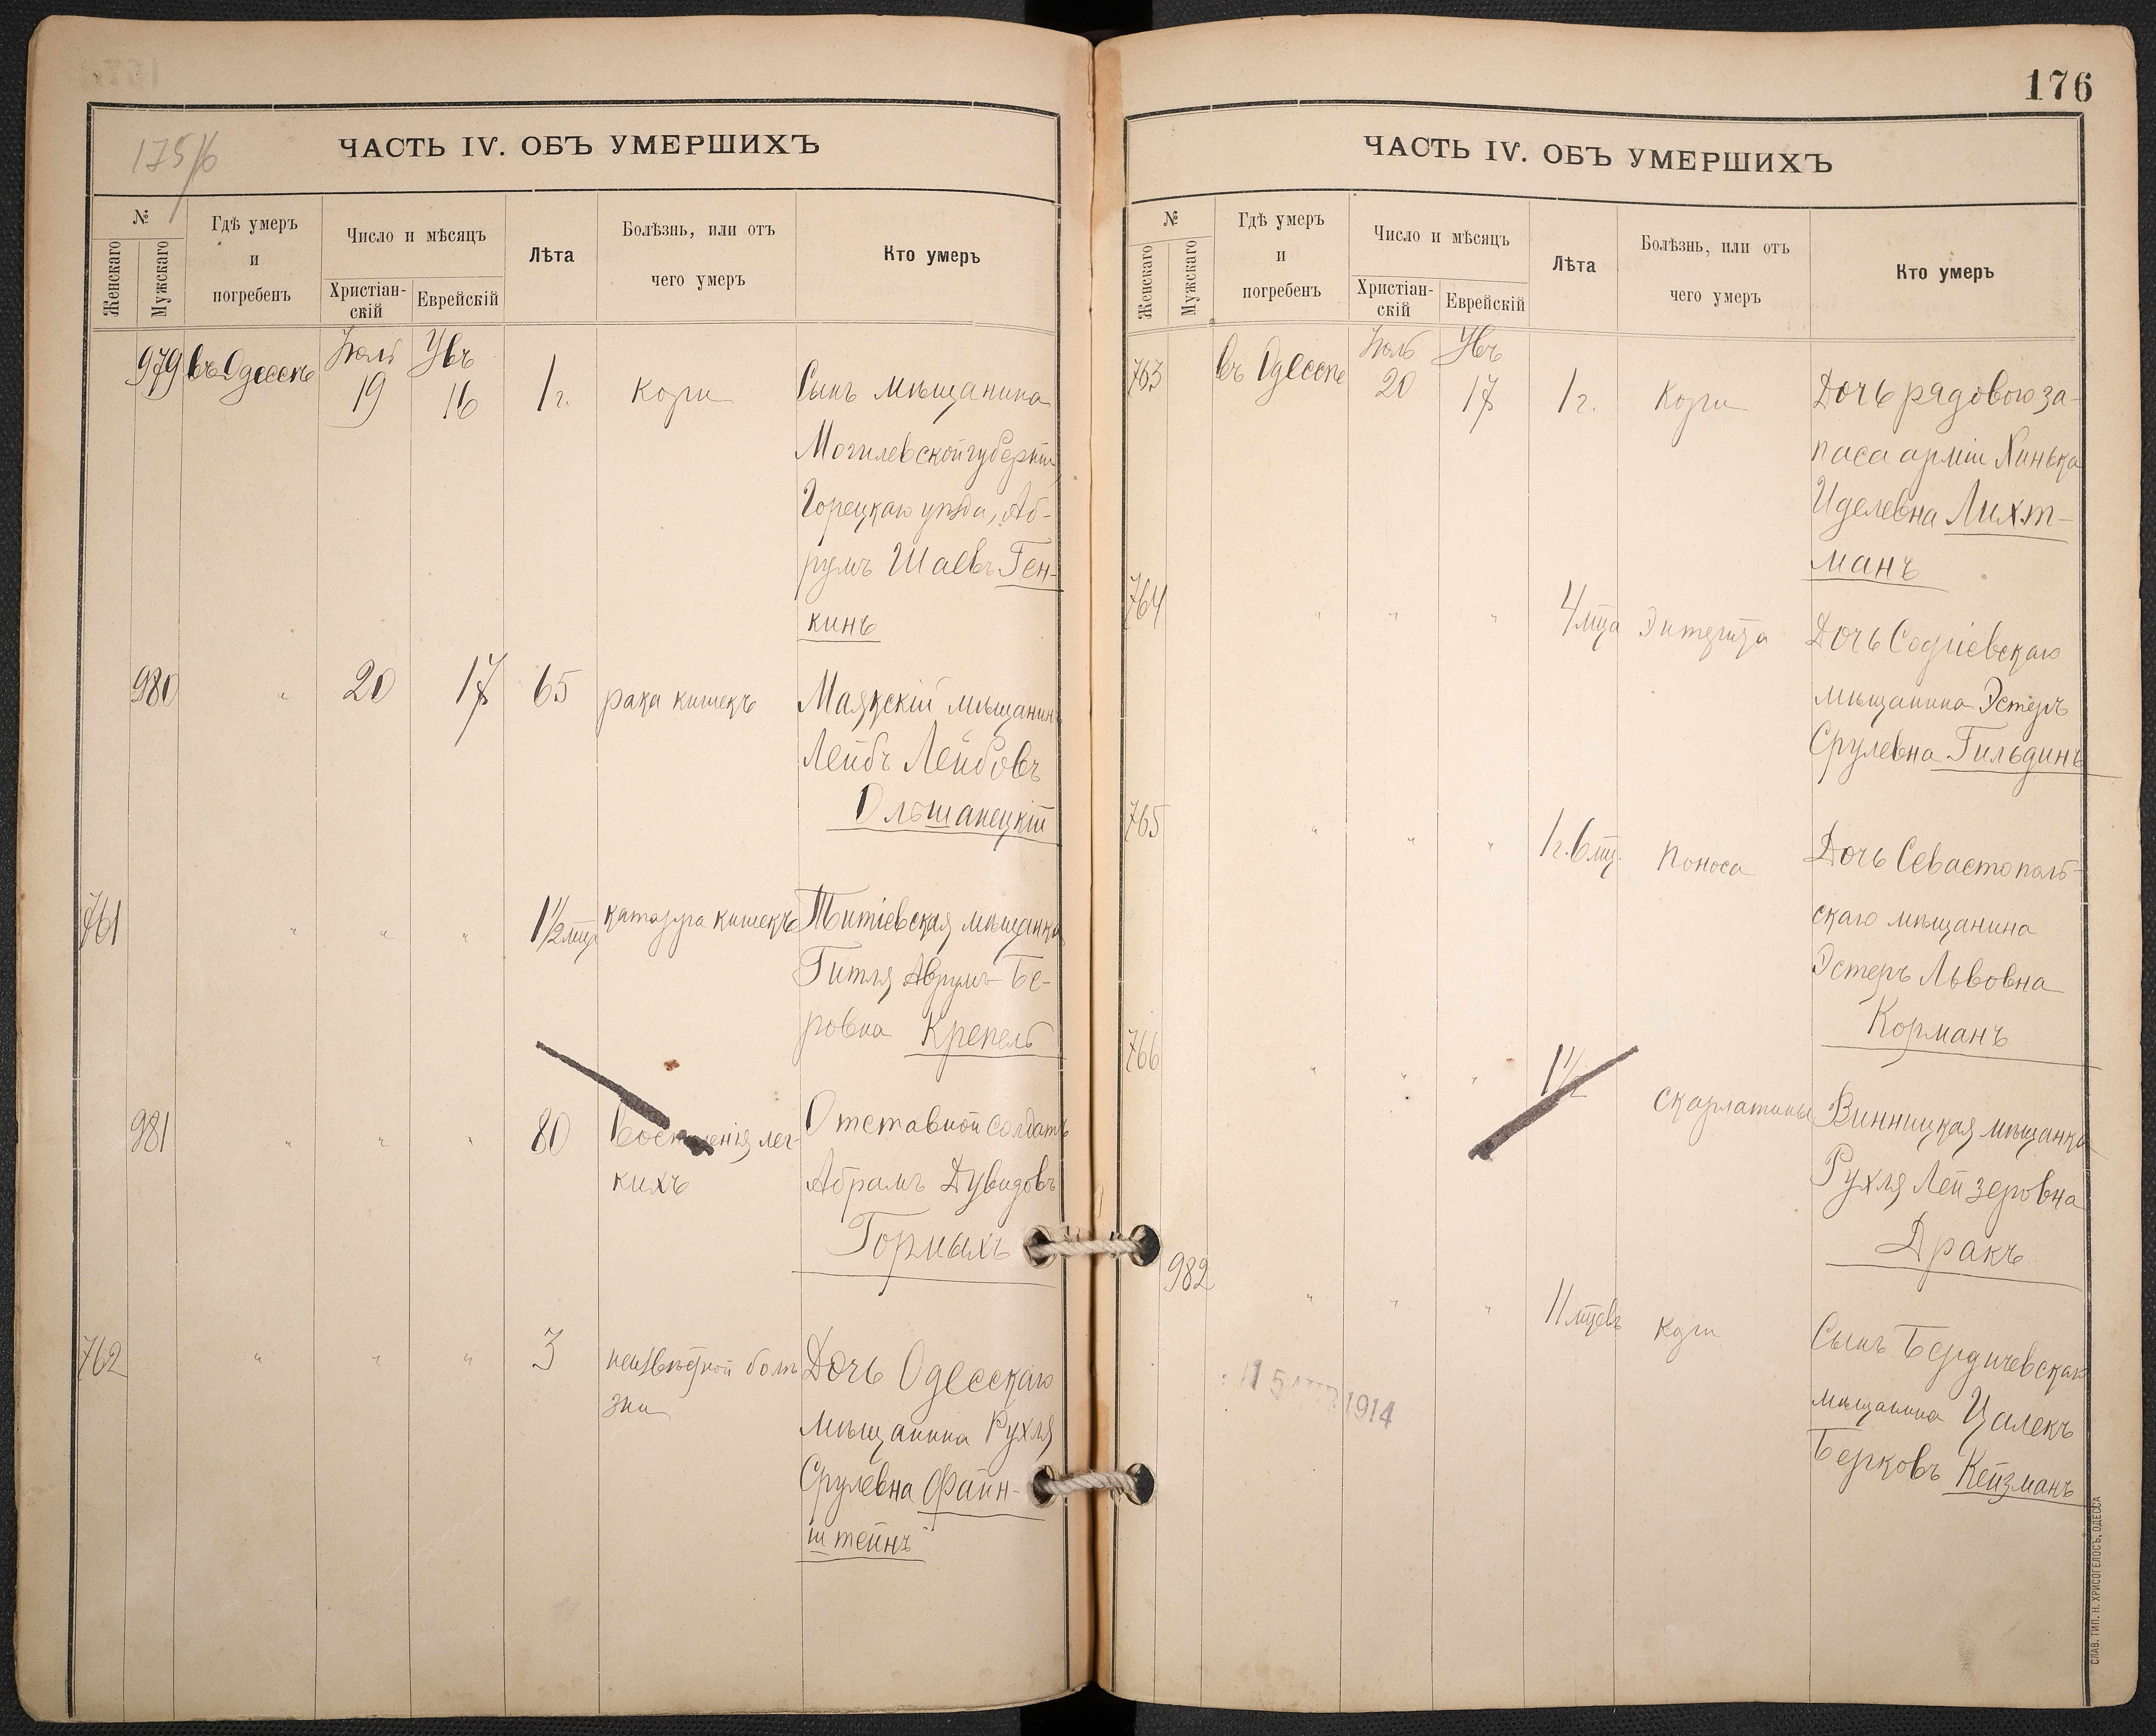 175/6
ЧАСТЬ IV. ОБЪ УМЕРШИХЪ
№
Женскаго
Мужскаго
Гдѣ умеръ
и
погребенъ
Число и мѣсяцъ
Христіан-
скій
Еврейскій
Лѣта
Болѣзнь, или отъ
чего умеръ
Кто умеръ
979 въ Одессѣ Іюль 19 Увъ 16 1 г. Кори Сынъ мѣщанина
Могилевской губерніи,
Горецкаго уѣзда, Аб-
румъ Шаевъ Ген-
кинъ
980 " 20 17 65 рака кишекъ Маякскій мѣщанинъ
Лейбъ Лейбовъ
Ольшанецкій
761 " " " 1½ мца катарра кишекъ Титіевская мѣщанка
Гитля Аврумъ-Бе-
ровна Крепель
981 " " " 80 Воспаленія лег- Отставной солдатъ
кихъ Абрамъ Дувидовъ
Горныхъ
762 " " " 3 неизвѣстной болѣ- Дочь Одесскаго
зни мѣщанина Рухля
Срулевна Файн-
штейнъ
176
ЧАСТЬ IV. ОБЪ УМЕРШИХЪ
№
Женскаго
Мужскаго
Гдѣ умеръ
и
погребенъ
Число и мѣсяцъ
Христіан-
скій
Еврейскій
Лѣта
Болѣзнь, или отъ
чего умеръ
Кто умеръ
763 въ Одессѣ Іюль 20 Увъ 17 1 г. Кори Дочь рядового за-
паса арміи Хинька
Иделевна Лихт-
манъ
764 " " " 4 мца Энтерита Дочь Софіевскаго
мѣщанина Эстеръ
Срулевна Гильдинъ
765 " " " 1 г. 6 мц. Поноса Дочь Севастополь-
скаго мѣщанина
Эстеръ Львовна
Корманъ
766 " " " 1½ Скарлатины Винницкая мѣщанка
Рухля Лейзеровна
Дракъ
982 " " " 11 мцевъ Кори Сынъ Бердичевскаго
мѣщанина Цалекъ
Берковъ Кейзманъ
1914
СЛАВ. ТИП. Н. ХРИСОГЕЛОСЪ, ОДЕССА